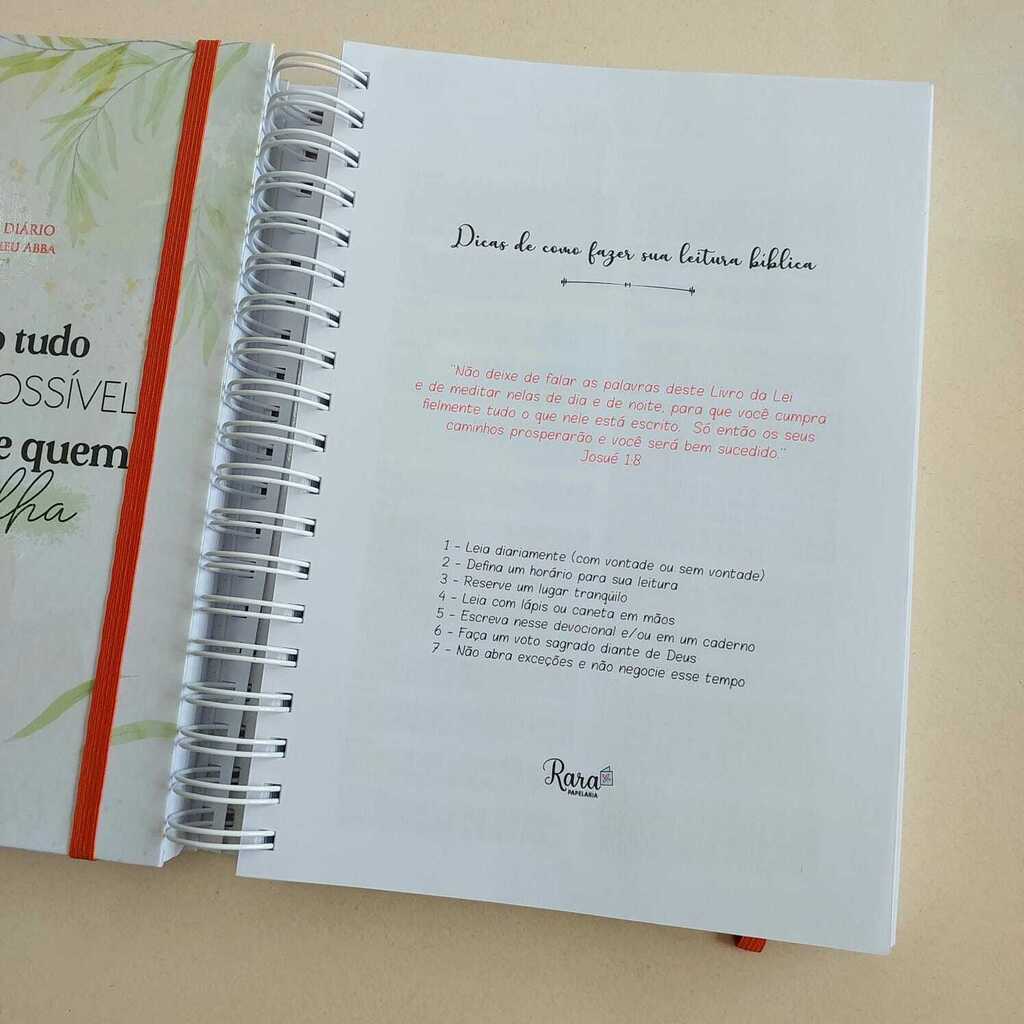 DIÁRIO
MEU ABBA
tudo
POSSÍVEL
e quem
lha
Dicas de como fazer sua leitura bíblica
"Não deixe de falar as palavras deste Livro da Lei
e de meditar nelas de dia e de noite, para que você cumpra
fielmente tudo o que nele está escrito. Só então os seus
caminhos prosperarão e você será bem sucedido."
Josué 1:8
1 - Leia diariamente (com vontade ou sem vontade)
2 - Defina um horário para sua leitura
3 - Reserve um lugar tranqüilo
4 - Leia com lápis ou caneta em mãos
5 - Escreva nesse devocional e/ou em um caderno
6 - Faça um voto sagrado diante de Deus
7 - Não abra exceções e não negocie esse tempo
Rara
PAPELARIA